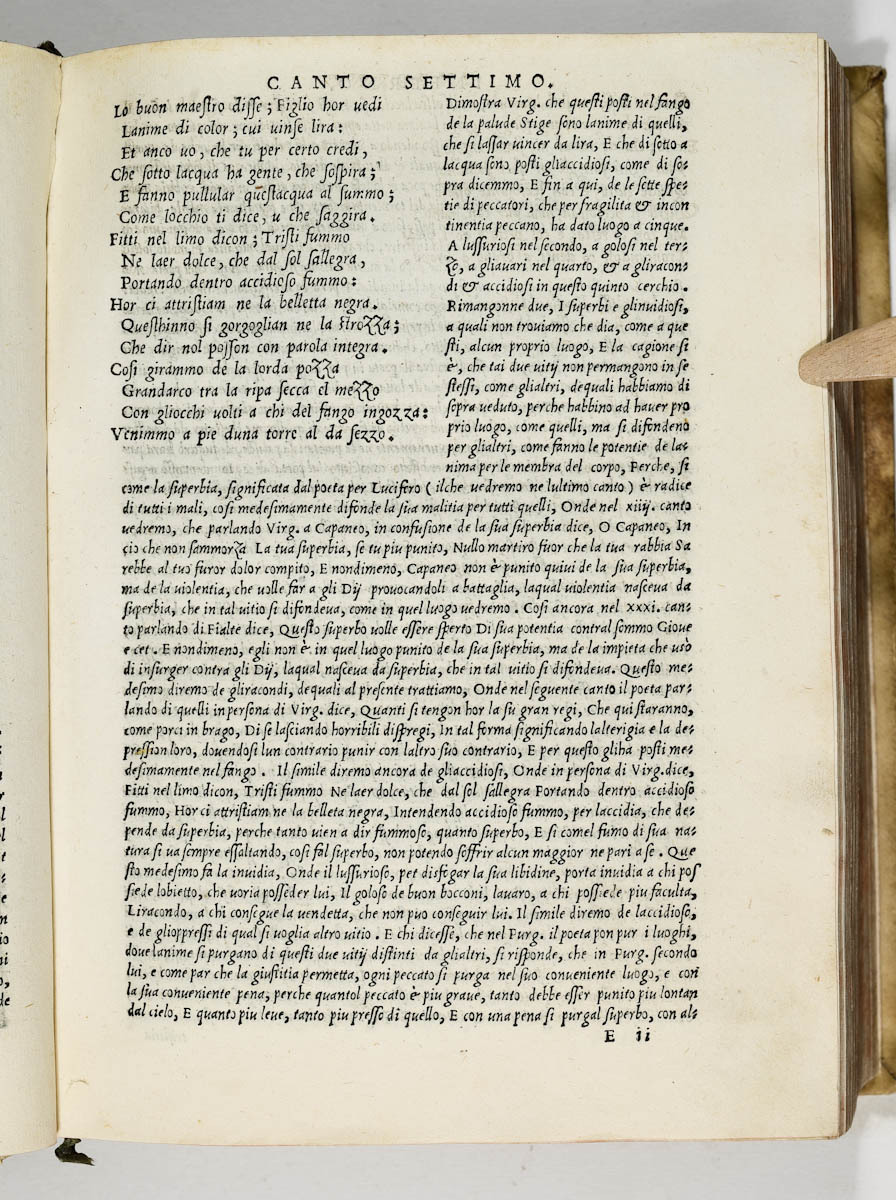 CANTO SETTIMO.
Lo buon maestro disse; Figlio hor uedi
Lanime di color; cui uinse lira:
Et anco uo, che tu per certo credi,
Che sotto lacqua ha gente, che sospira;
E fanno pullular questacqua al summo;
Come locchio ti dice, u che saggira.
Fitti nel limo dicon; Tristi fummo
Ne laer dolce, che dal sol sallegra,
Portando dentro accidioso fummo:
Hor ci attristiam ne la belletta negra.
Questhinno si gorgoglian ne la strozza;
Che dir nol posson con parola integra.
Cosi girammo de la lorda pozza
Grandarco tra la ripa secca el mezzo
Con gliocchi uolti a chi del fango ingozza:
Venimmo a pie duna torre al da sezzo.
Dimostra Virg. che questi posti nel fango
de la palude Stige sono lanime di quelli,
che si lassar uincer da lira, E che di sotto a
lacqua sono posti gliaccidiosi, come di so-
pra dicemmo, E fin a qui, de le sette spe-
tie di peccatori, che per fragilita & incon
tinentia peccano, ha dato luogo a cinque.
A lussuriosi nel secondo, a golosi nel ter-
zo, a gliauari nel quarto, & a gliracon-
di & accidiosi in questo quinto cerchio.
Rimangonne due, I superbi e glinuidiosi,
a quali non trouiamo che dia, come a que
sti, alcun proprio luogo, E la cagione si
è, che tai due uitij non permangono in se
stessi, come glialtri, dequali habbiamo di
sopra ueduto, perche habbino ad hauer pro
prio luogo, come quelli, ma si difondeno
per glialtri, come fanno le potentie de la-
nima per le membra del corpo, Perche, si
come la superbia, significata dal poeta per Lucifero ( ilche uedremo ne lultimo canto ) è radice
di tutti i mali, cosi medesimamente difonde la sua malitia per tutti quelli, Onde nel xiiij. canto
uedremo, che parlando Virg. a Capaneo, in confusione de la sua superbia dice, O Capaneo, In
cio che non sammorza La tua superbia, se tu piu punito, Nullo martiro fuor che la tua rabbia Sa
rebbe al tuo furor dolor compito, E nondimeno, Capaneo non è punito quiui de la sua superbia,
ma de la uiolentia, che uolle far a gli Dij prouocandoli a battaglia, laqual uiolentia nasceua da
superbia, che in tal uitio si difondeua, come in quel luogo uedremo. Cosi ancora nel xxxi. can-
to parlando di Fialte dice, Questo superbo uolle essere sperto Di sua potentia contral sommo Gioue
e cet. E nondimeno, egli non è in quel luogo punito de la sua superbia, ma de la impieta che usò
di insurger contra gli Dij, laqual nasceua da superbia, che in tal uitio si difondeua. Questo me-
desimo diremo de gliracondi, dequali al presente trattiamo, Onde nel seguente canto il poeta par-
lando di quelli in persona di Virg. dice, Quanti si tengon hor la su gran regi, Che qui staranno,
come porci in brago, Di se lasciando horribili dispregi, In tal forma significando lalterigia e la de-
pression loro, douendosi lun contrario punir con laltro suo contrario, E per questo gliha posti me-
desimamente nel fango. Il simile diremo ancora de gliaccidiosi, Onde in persona di Virg. dice,
Fitti nel limo dicon, Tristi fummo Ne laer dolce, che dal sol sallegra Portando dentro accidioso
fummo, Hor ci attristiam ne la belleta negra, Intendendo accidioso fummo, per laccidia, che de-
pende da superbia, perche tanto uien a dir fummoso, quanto superbo, E si comel fumo di sua na-
tura si ua sempre essaltando, cosi fal superbo, non potendo soffrir alcun maggior ne pari a se. Que
sto medesimo fa la inuidia, Onde il lussurioso, pet disfogar la sua libidine, porta inuidia a chi pos
siede lobietto, che uoria posseder lui, Il goloso de buon bocconi, lauaro, a chi possiede piu faculta,
Liracondo, a chi consegue la uendetta, che non puo conseguir lui. Il simile diremo de laccidioso,
e de glioppressi di qual si uoglia altro uitio. E chi dicesse, che nel Purg. il poeta pon pur i luoghi,
doue lanime si purgano di questi due uitij distinti da glialtri, si risponde, che in Purg. secondo
lui, e come par che la giustitia permetta, ogni peccato si purga nel suo conueniente luogo, e con
la sua conueniente pena, perche quantol peccato è piu graue, tanto debbe esser punito piu lontan
dal cielo, E quanto piu leue, tanto piu presso di quello, E con una pena si purgal superbo, con al-
E ii